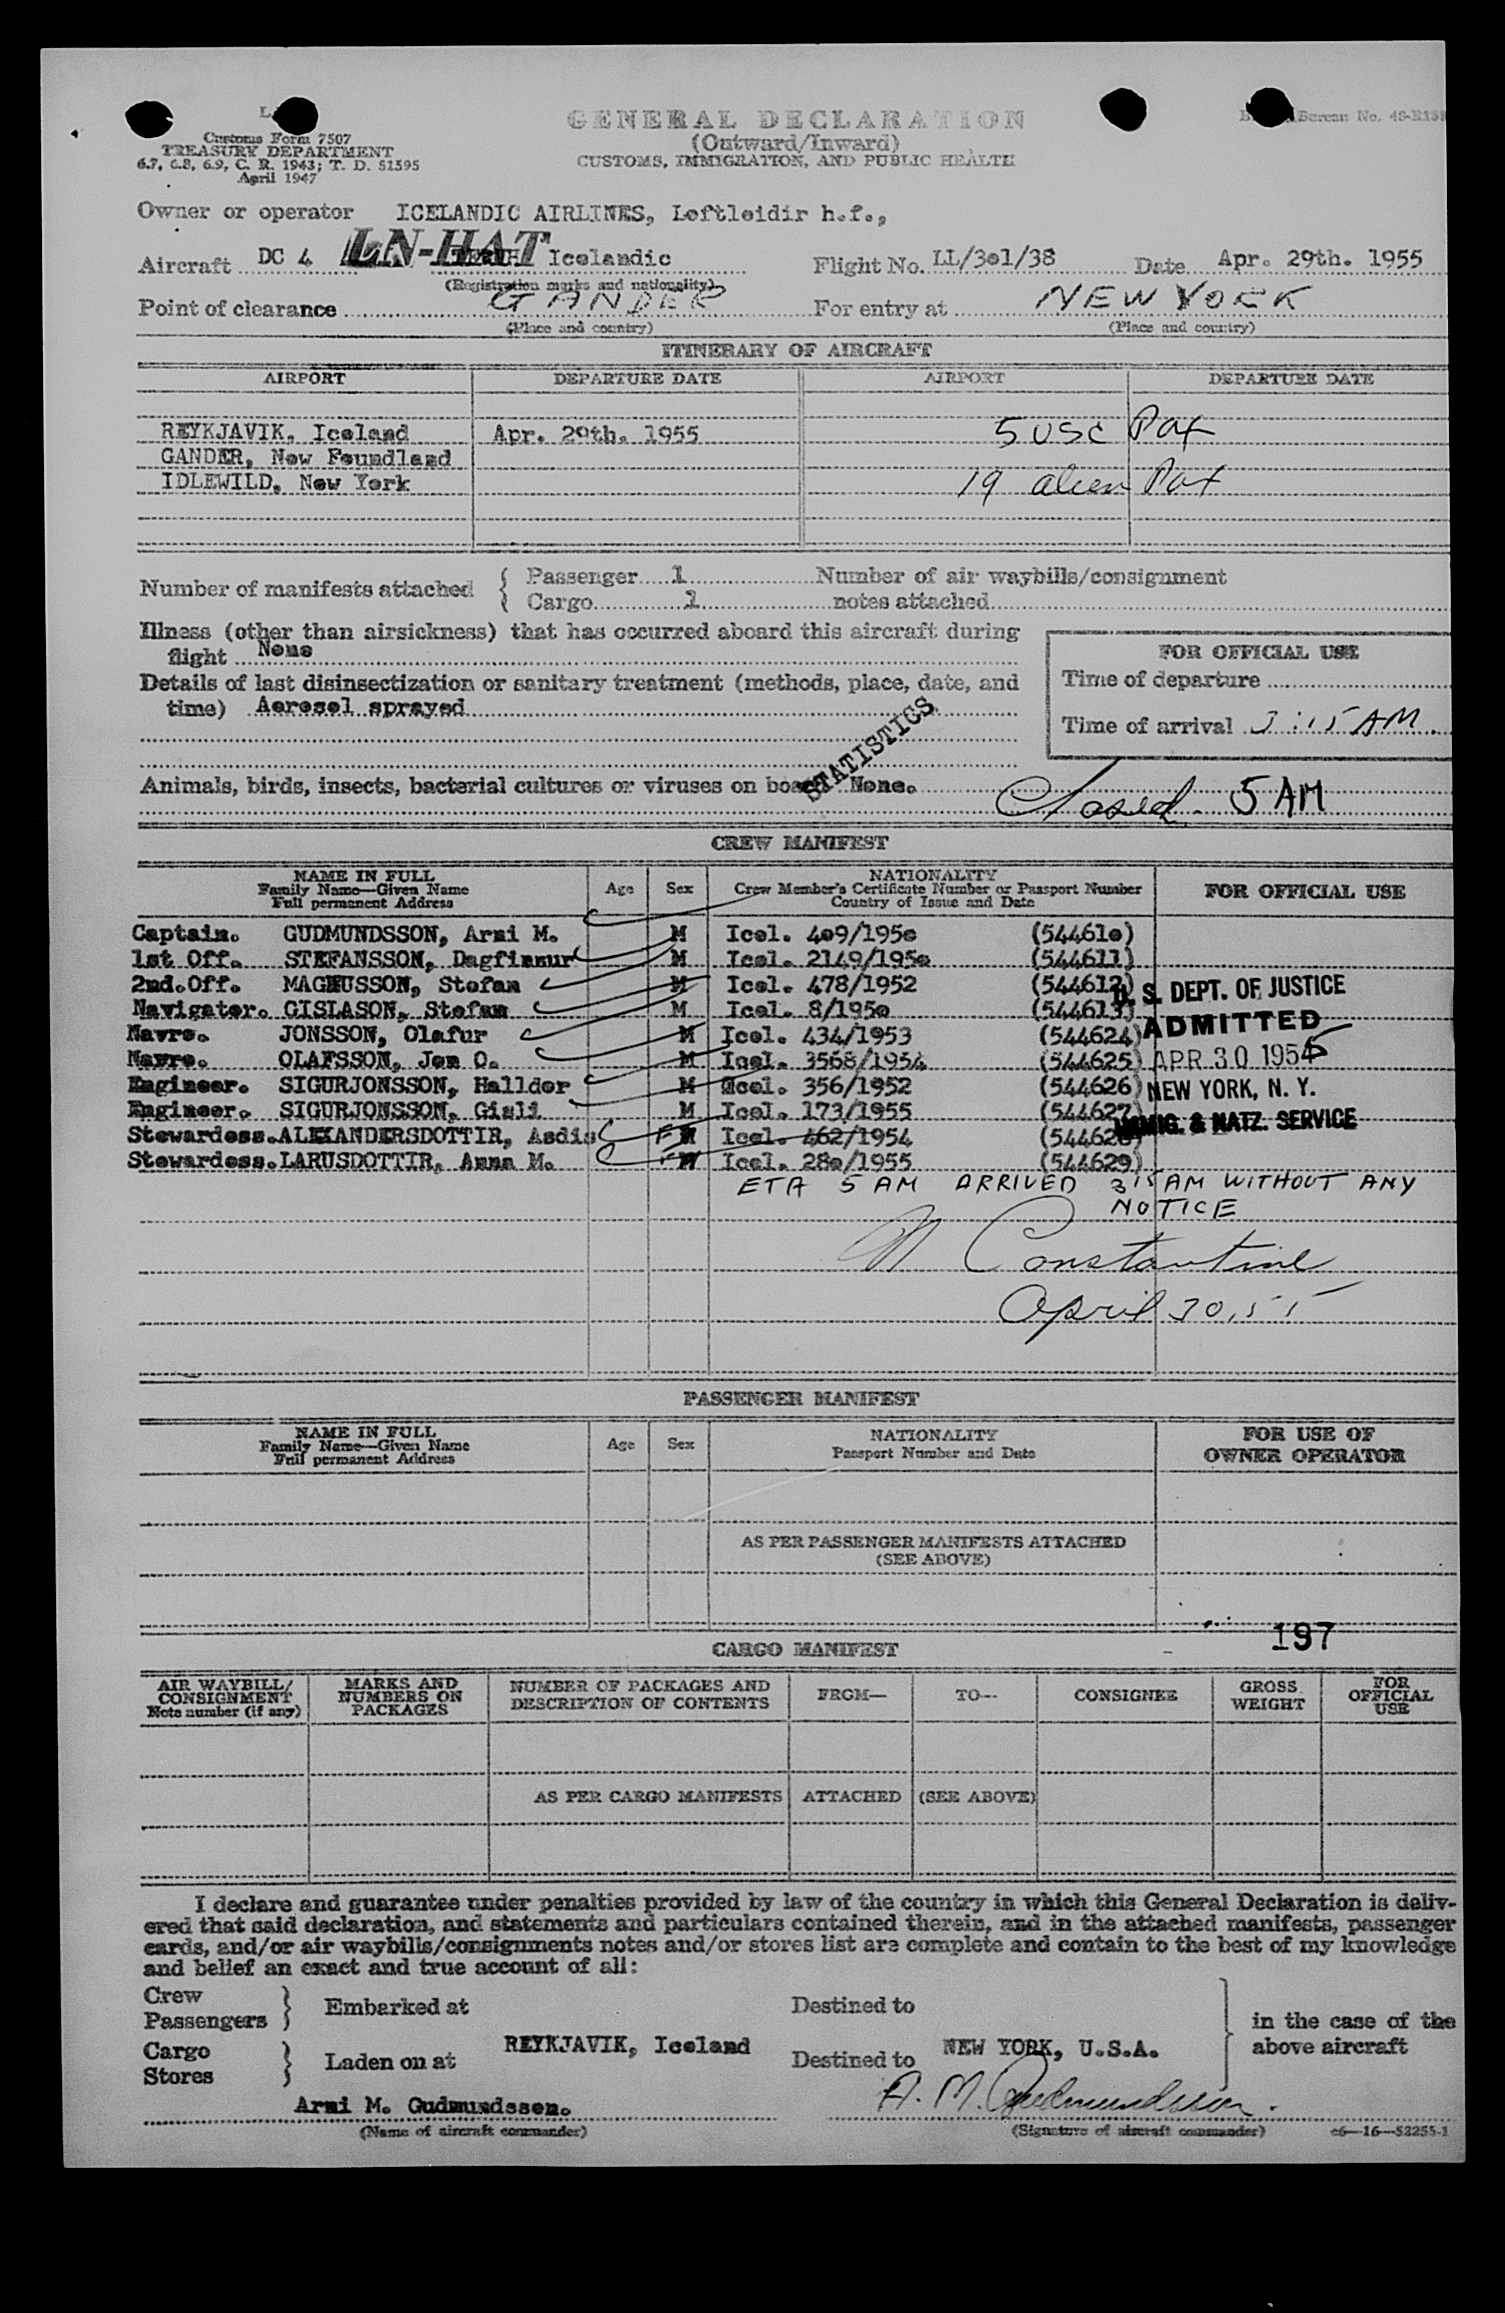 Customs Form 7507
TREASURY DEPARTMENT
6.7, 6.8, 6.9, C. R. 1943; T. D. 51595
April 1947
GENERAL DECLARATION
(Outward/Inward)
CUSTOMS, IMMIGRATION, AND PUBLIC HEALTH
Bureau No. 48-R138
Owner or operator ICELANDIC AIRLINES, Loftleidir h.f.,
Aircraft DC 4 LN-HAT Icelandic Flight No. LL/3o1/38 Date Apr. 29th. 1955
(Registration marks and nationality)
Point of clearance GANDER For entry at NEW YORK
(Place and country) (Place and country)
ITINERARY OF AIRCRAFT
AIRPORT DEPARTURE DATE AIRPORT DEPARTURE DATE
REYKJAVIK, Iceland Apr. 29th. 1955 5 USC Pax
GANDER, New Foundland
IDLEWILD, New York 19 alien Pax
Number of manifests attached { Passenger 1 Number of air waybills/consignment
Cargo 1 notes attached
Illness (other than airsickness) that has occurred aboard this aircraft during
flight None
FOR OFFICIAL USE
Details of last disinsectization or sanitary treatment (methods, place, date, and
Time of departure
time) Aerosol sprayed
Time of arrival 3:15 AM.
STATISTICS
Animals, birds, insects, bacterial cultures or viruses on board None.
Closed 5 AM
CREW MANIFEST
NAME IN FULL
Family Name—Given Name
Full permanent Address
Age Sex
NATIONALITY
Crew Member's Certificate Number or Passport Number
Country of Issue and Date
FOR OFFICIAL USE
Captain. GUDMUNDSSON, Arni M. M Icel. 4o9/195o (54461o)
1st Off. STEFANSSON, Dagfinnur M Icel. 2149/195o (544611)
2nd.Off. MAGNUSSON, Stefan M Icel. 478/1952 (544612)
Navigator. GISLASON, Stefan M Icel. 8/195o (544613)
Navro. JONSSON, Olafur M Icel. 434/1953 (544624)
Navro. OLAFSSON, Jon O. M Icel. 3568/1954 (544625)
Engineer. SIGURJONSSON, Halldor M Icel. 356/1952 (544626)
Engineer. SIGURJONSSON, Gisli M Icel. 173/1955 (544627)
Stewardess. ALEXANDERSDOTTIR, Asdis F Icel. 462/1954 (544628)
Stewardess. LARUSDOTTIR, Anna M. F Icel. 28o/1955 (544629)
U. S. DEPT. OF JUSTICE
ADMITTED
APR 30 1955
NEW YORK, N. Y.
IMMIG. & NATZ. SERVICE
ETA 5 AM ARRIVED 3 15 AM WITHOUT ANY
NOTICE
N Constantine
April 30, 55
PASSENGER MANIFEST
NAME IN FULL
Family Name—Given Name
Full permanent Address
Age Sex
NATIONALITY
Passport Number and Date
FOR USE OF
OWNER OPERATOR
AS PER PASSENGER MANIFESTS ATTACHED
(SEE ABOVE)
197
CARGO MANIFEST
AIR WAYBILL/
CONSIGNMENT
Note number (if any)
MARKS AND
NUMBERS ON
PACKAGES
NUMBER OF PACKAGES AND
DESCRIPTION OF CONTENTS
FROM—
TO—
CONSIGNEE
GROSS
WEIGHT
FOR
OFFICIAL
USE
AS PER CARGO MANIFESTS ATTACHED (SEE ABOVE)
I declare and guarantee under penalties provided by law of the country in which this General Declaration is deliv-
ered that said declaration, and statements and particulars contained therein, and in the attached manifests, passenger
cards, and/or air waybills/consignments notes and/or stores list are complete and contain to the best of my knowledge
and belief an exact and true account of all:
Crew
Passengers } Embarked at Destined to
in the case of the
above aircraft
REYKJAVIK, Iceland NEW YORK, U.S.A.
Cargo
Stores } Laden on at Destined to
Arni M. Gudmundsson. A. M. Gudmundsson.
(Name of aircraft commander) (Signature of aircraft commander) c6—16—52255-1